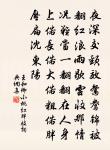 夜深交頸效鴛鴦錦被
翻紅浪雨歇雲收那情
況難當一翻翻在人身
上偌長偌大偌粗偌胖
壓扁沈東陽
王和卿小桃紅胖妓